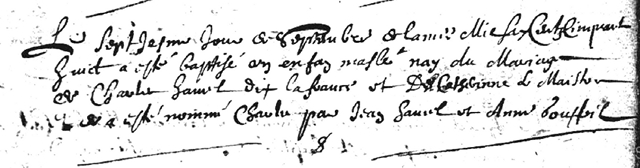 Le Septiesme Jour de Septembre de lannee Mil six Cent Cinquant
huict a esté baptisé un enfan masle nay du Mariage
de Charle hamel dit lafrance et De Catherinne le Maistre
et a esté nommé Charle par Jean hamel et Anne
8